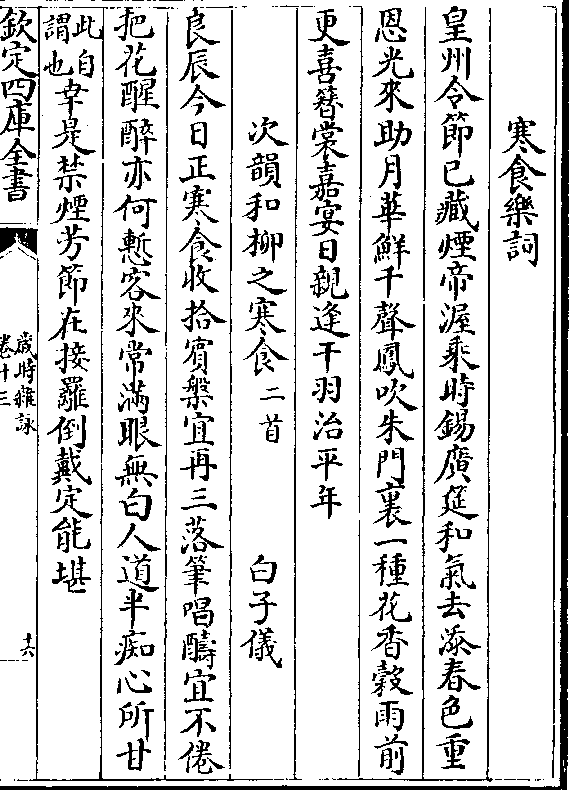 寒食樂詞
皇州令節已藏煙帝渥乘時錫廣筵和氣去添春色重
恩光來助月華鮮千聲鳳吹朱門裏一種花香穀雨前
更喜簮裳嘉宴日親逢干羽治平年
次韻和柳之寒食二首 白子儀
良辰今日正寒食收拾賓槃宜再三落筆唱醻宜不倦
把花醒醉亦何慙客來常滿眼無白人道半痴心所甘
此自謂也幸是禁煙芳節在接䍦倒戴定能堪
欽定四庫全書
歲時雜詠
卷十三
十六